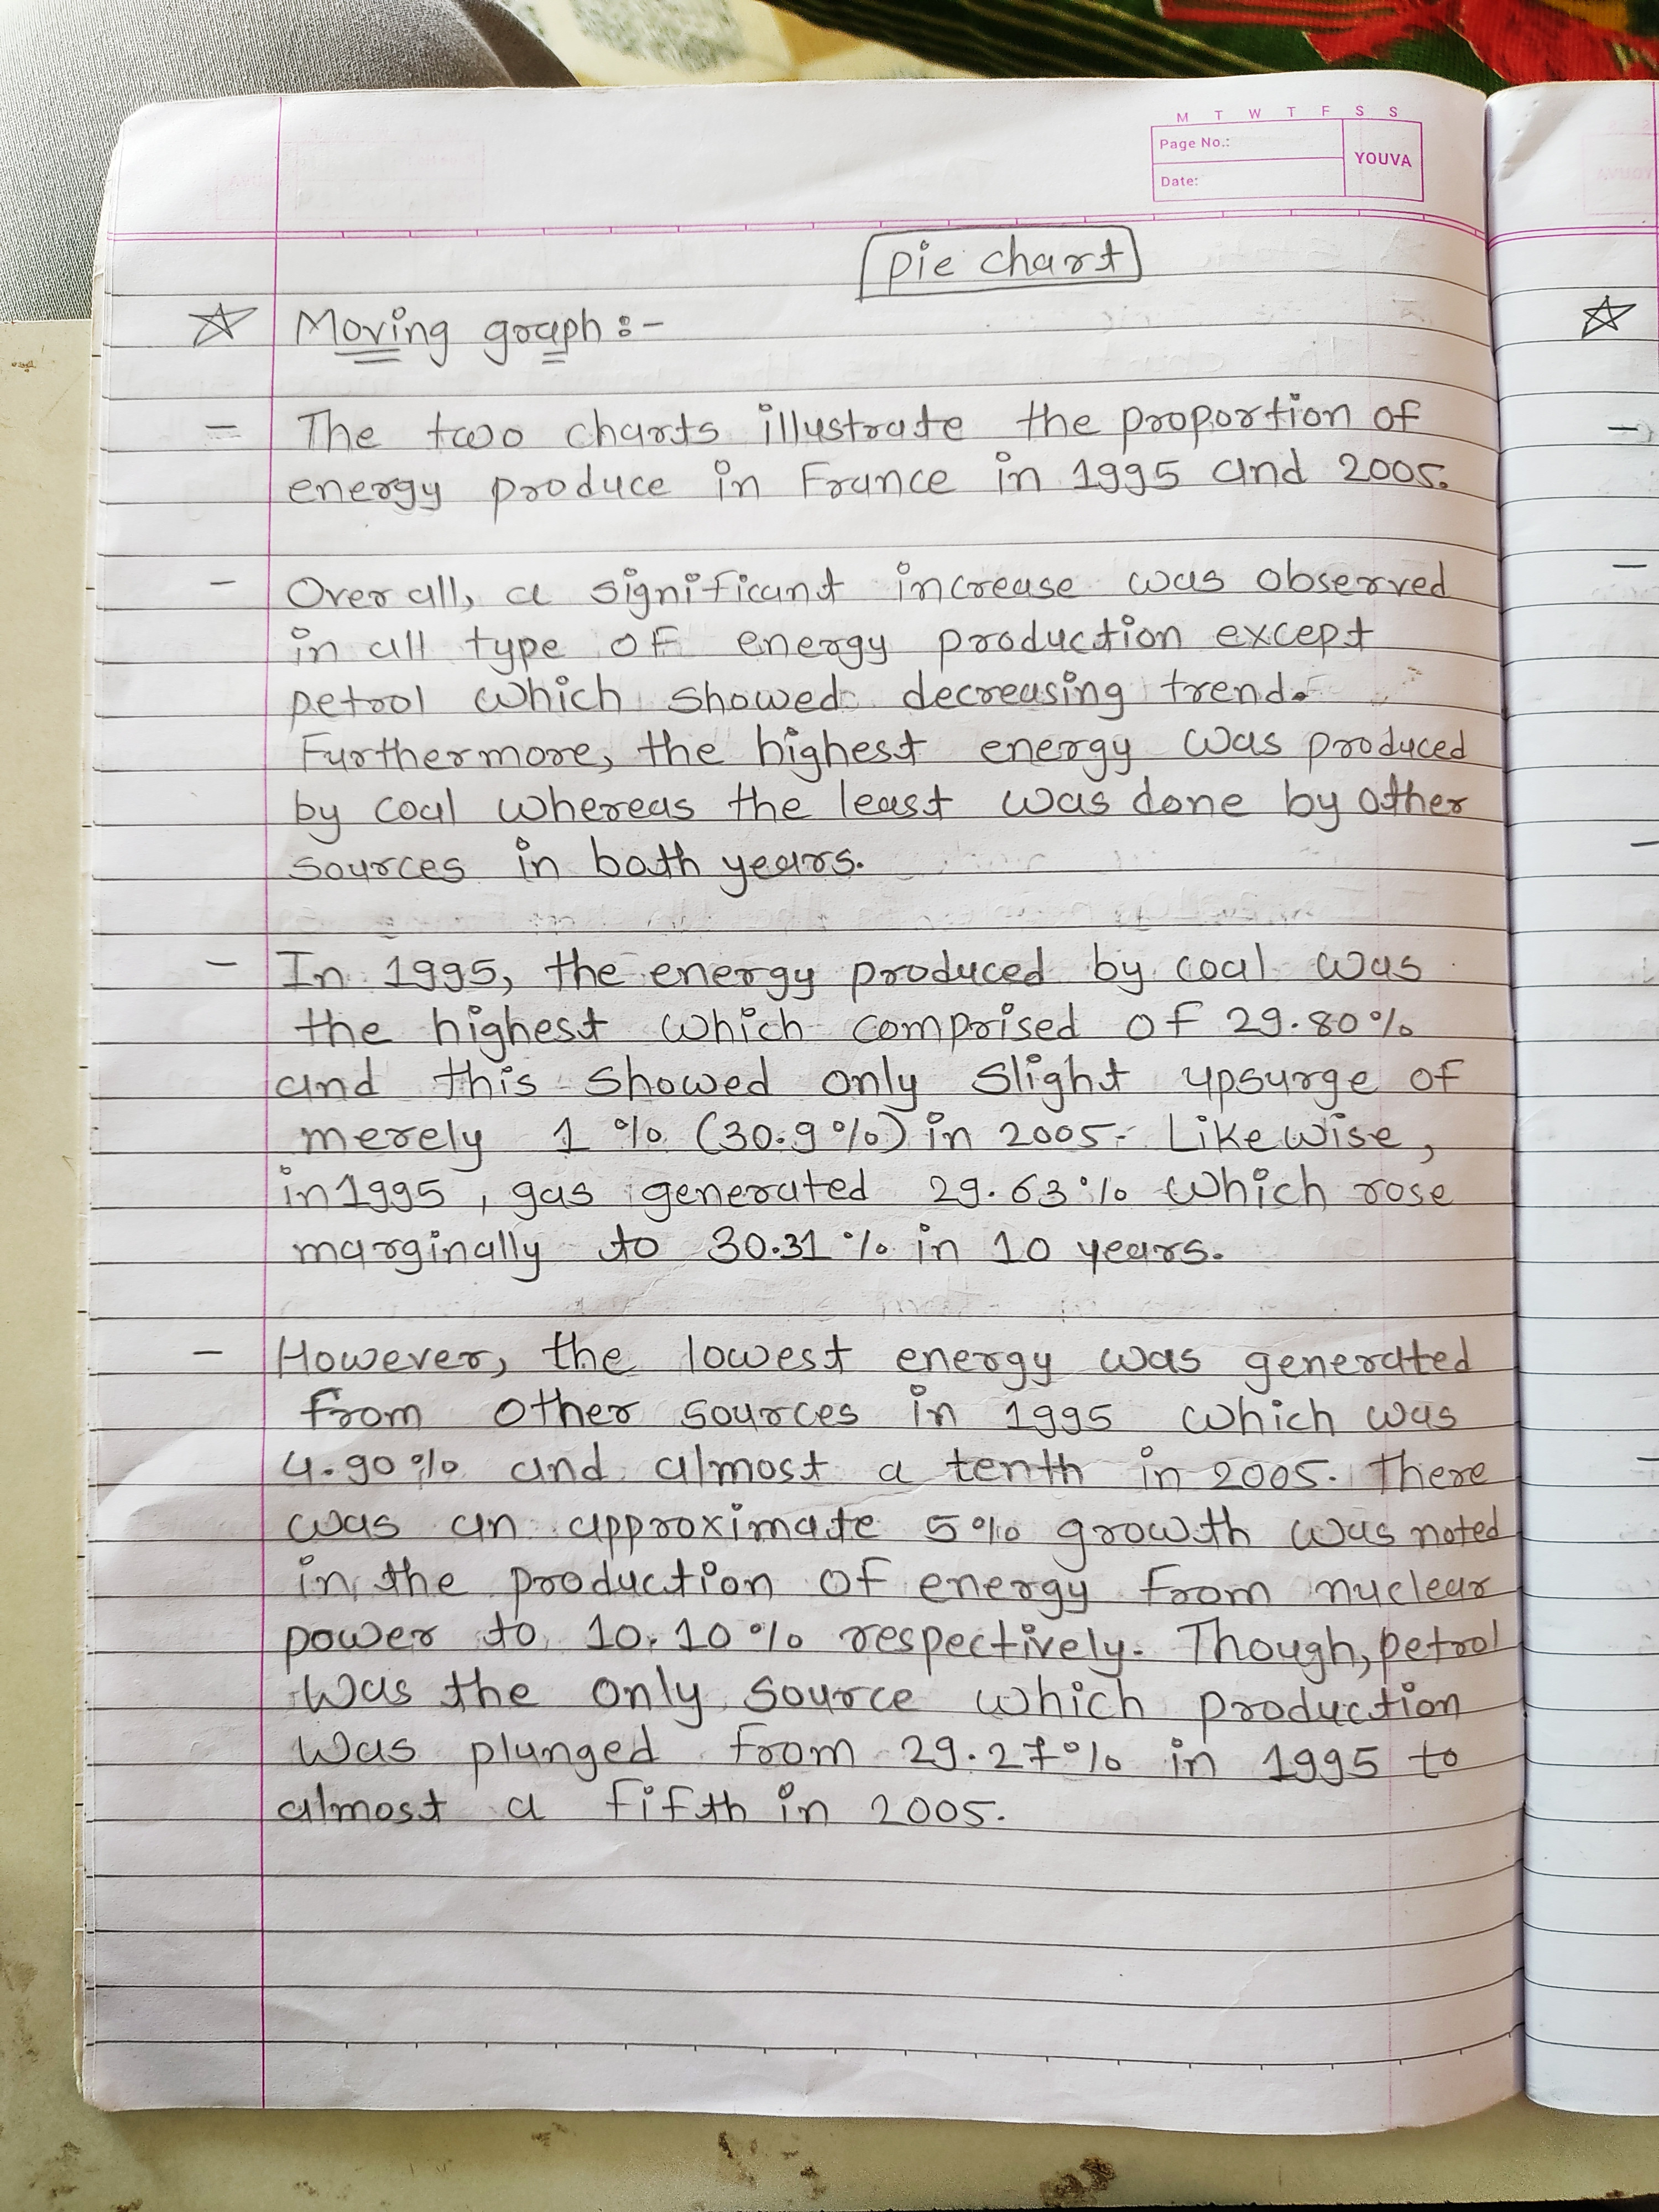 M T W T F S S
Page No.:
YOUVA
Date:
pie chart
Moving graph :-
The two charts illustrate the proportion of
energy produce in France in 1995 and 2005.
- Over all, a significant increase was observed
in all type of energy production except
petrol which showed decreasing trend.
Furthermore, the highest energy was produced
by coal whereas the least was done by other
sources in both years.
- In 1995, the energy produced by coal was
the highest which comprised of 29.80%
and this showed only slight upsurge of
merely 1 % (30.9%) in 2005. Likewise,
in 1995, gas generated 29.63% which rose
marginally to 30.31% in 10 years.
- However, the lowest energy was generated
from other sources in 1995 which was
4.90% and almost a tenth in 2005. There
was an approximate 5% growth was noted
in the production of energy from nuclear
power to 10.10% respectively. Though, petrol
was the only source which production
was plunged from 29.27% in 1995 to
almost a fifth in 2005.